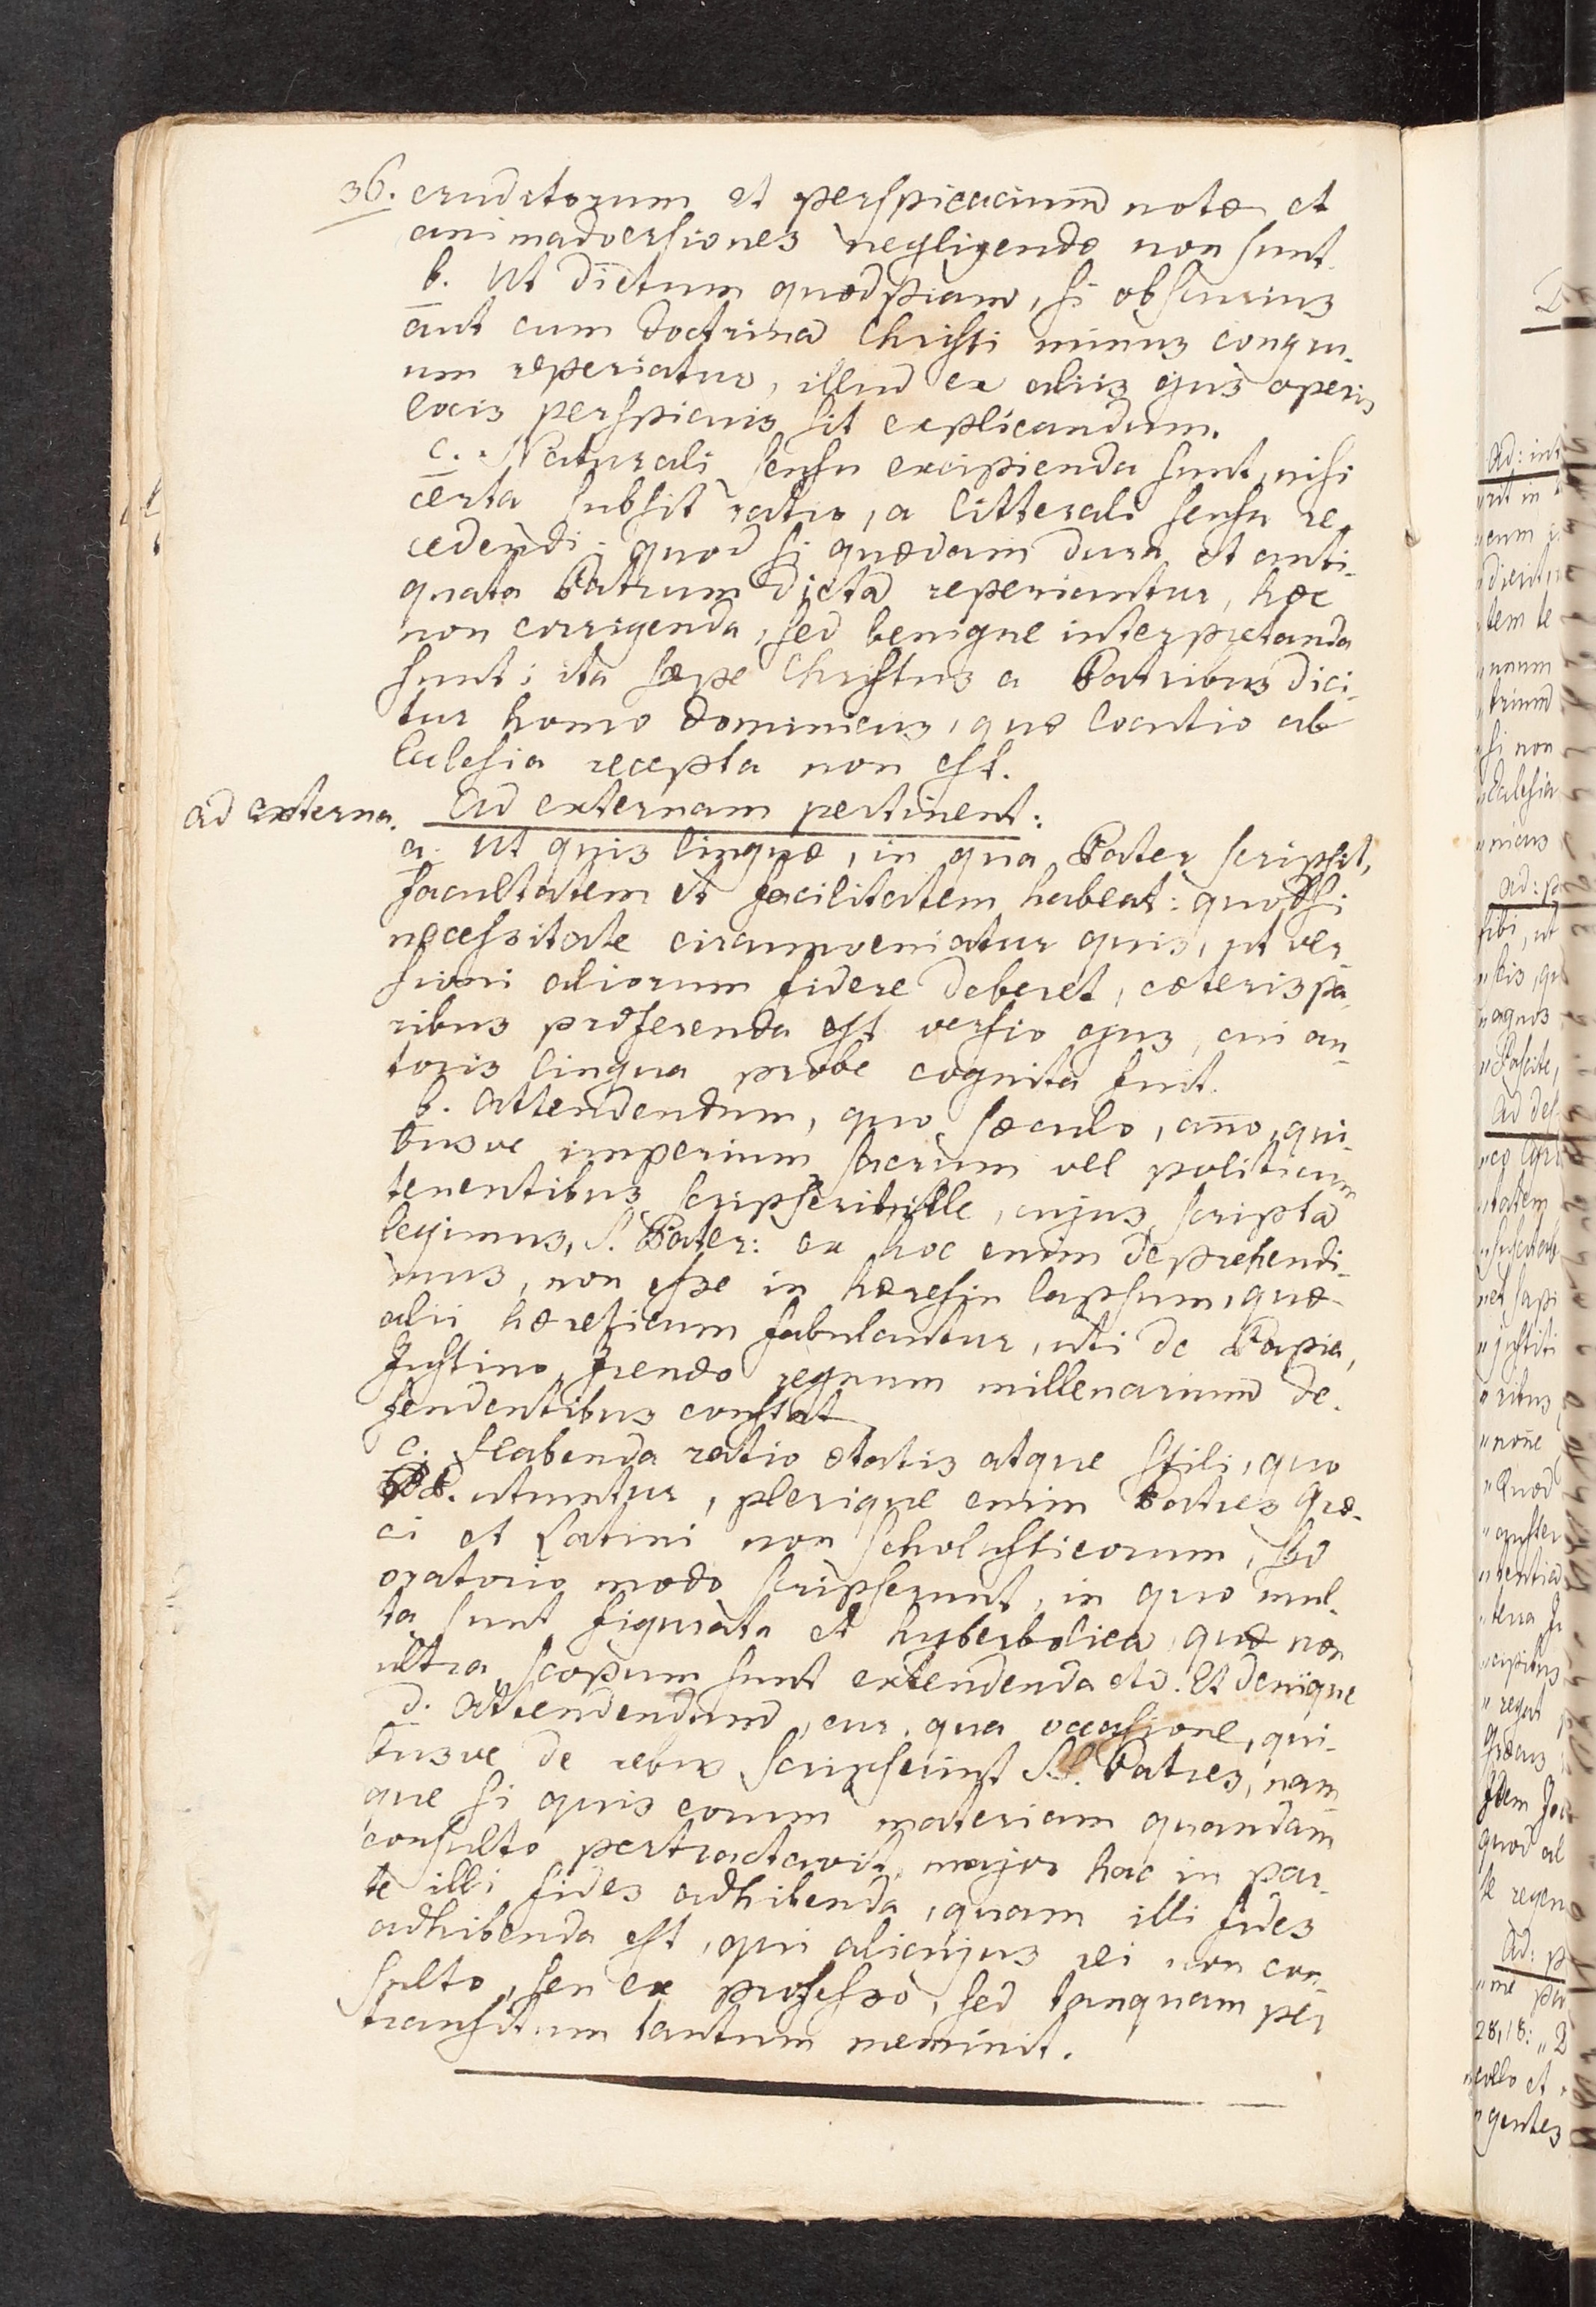 36. eruditorum et perspicacium notæ et
animadversiones negligendæ non sunt.
b. Ut dictum quodpiam, si obscurius
aut cum doctrina Christi minus congru-
um reperiatur, illud ex aliis ejus operis
locis perspicuis sit explicandum.
c. Naturali sensu excipienda sunt, nisi
certa subsit ratio, a litterali sensu re-
cedendi: quod si quædam dura et anti-
quata Patrum dicta reperiantur, hæc
non corrigenda, sed benigne interpretanda
sunt; ita sæpe Christus a Patribus dici-
tur homo dominicus, quæ locutio ab
Ecclesia recepta non est.
ad externa. Ad externam pertinent:
a. Ut quis linguæ, in qua Pater scripsit,
facultatem et facilitatem habeat: quodsi
necessitate circumveniatur quis, ut ver-
sioni aliorum fidere deberet, cæteris pa-
ribus præferenda est versio ejus, cui au-
toris lingua probe cognita fuit.
b. Attendendum, quo sæculo, año, qui-
busve imperium sacrum vel politicum
tenentibus scripserit ille, cujus scripta
legimus, S. Pater: ex hoc enim deprehendi-
mus, non esse in hæresin lapsum, quæ
alii hæreticum fabulantur, uti de Papia,
Justino, Irenæo regnum millenarium de-
fendentibus constat.
c. Habenda ratio ætatis atque stili, quo
PP. utuntur, plerique enim Patres Græ-
ci et Latini non scholasticorum, sed
oratorio modo scripserunt, in quo mul-
ta sunt figurata et hyberbolica, quæ non
ultra scopum sunt extendenda etc. Et denique
d. Attendendum, cur, qua occasione, qui-
busve de rebus scripserint S.S. Patres, nam
que si quis eorum materiam quandam
consulto pertractavit, major hac in par-
te illi fides adhibenda, quam illi fides
adhibenda est, qui alicujus rei non con-
sulto, seu ex professo, sed tanquam per
transitum tantum meminit.